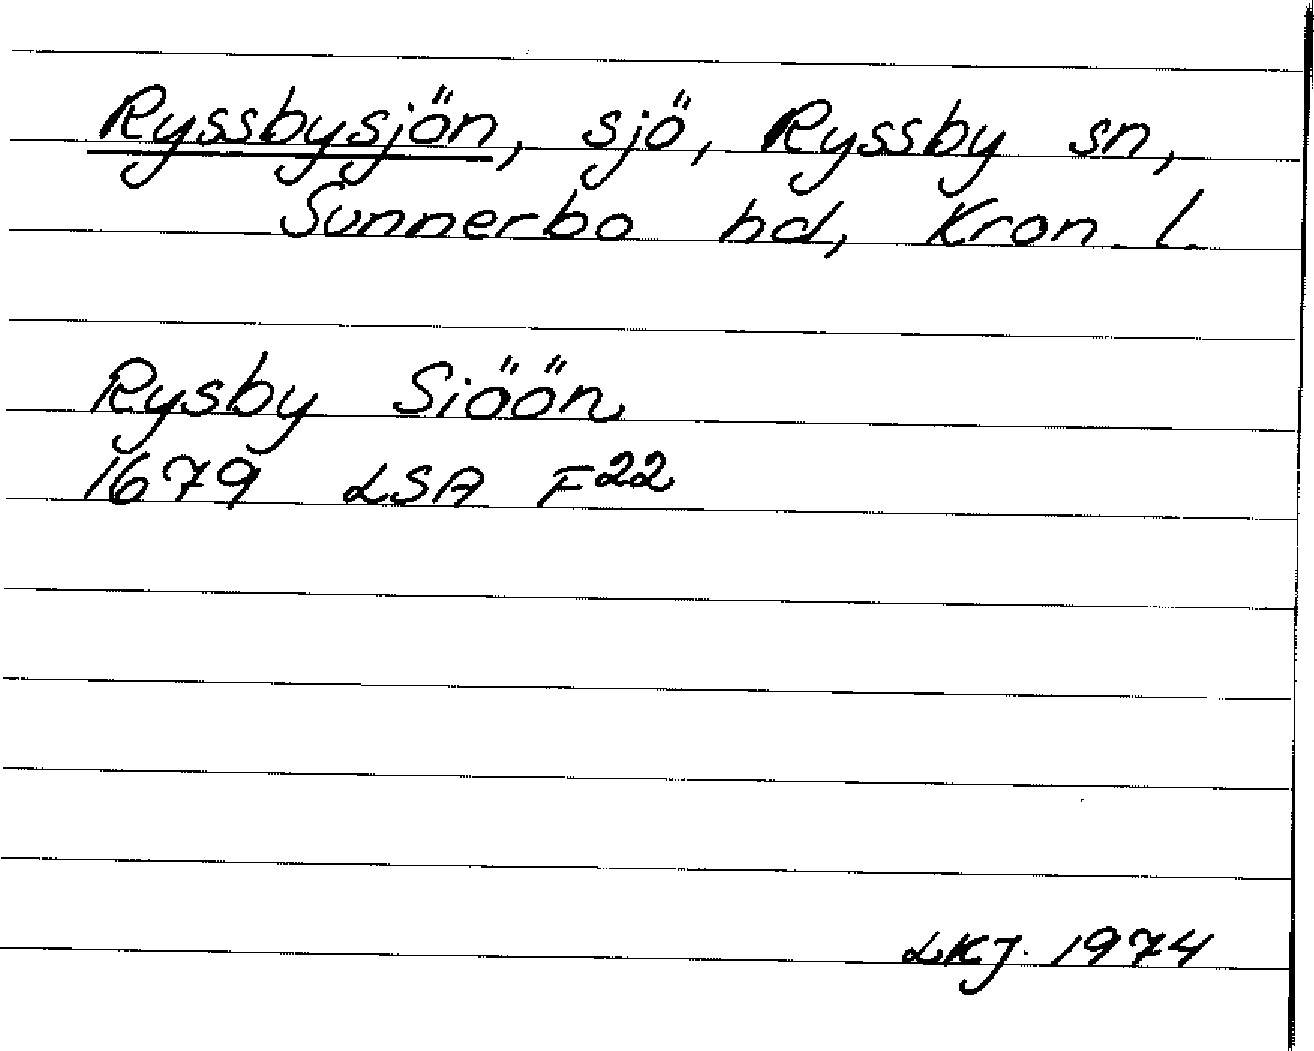 Ryssbysjön, sjö, Ryssby sn,
Sunnerbo hd, Kron. l.
Rysby Siöön
1679 LSA F22
LKJ. 1974